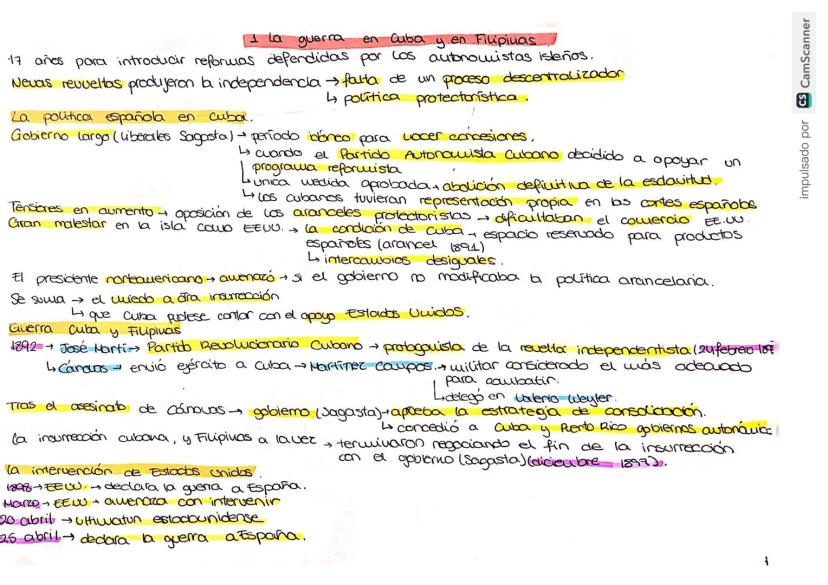 1 La guerra en Cuba y en Filipinas
17 años para introducir reformas defendidas por los autonomistas isleños.
Nuevas revueltas produjeron la independencia → falta de un proceso descentralizador
↳ política protectorística.
La política española en Cuba.
Gobierno largo (liberales Sagasta) → período idóneo para hacer concesiones.
↳ cuando el Partido Autonomista Cubano decidido a apoyar un
programa reformista
↳ única medida aprobada → abolición definitiva de la esclavitud.
↳ Los cubanos tuvieran representación propia en las cortes españolas
Tensiones en aumento → oposición de los aranceles protectoristas → dificultaban el comercio EE.UU.
Gran malestar en la isla como EEUU. → La condición de Cuba → espacio reservado para productos
españoles (arancel 1891)
↳ intercambios desiguales.
El presidente norteamericano → amenazó → si el gobierno no modificaba la política arancelaria.
Se suma → el miedo a otra insurrección
↳ que Cuba pudiese contar con el apoyo Estados Unidos.
Guerra Cuba y Filipinas
1892 → José Martí → Partido Revolucionario Cubano → protagonista de la revuelta independentista (24 febrero 189
↳ Cánovas → envió ejército a Cuba → Martínez Campos. → militar considerado el más adecuado
para combatir.
↳ delegó en Valerio Weyler.
Tras el asesinato de Cánovas → gobierno (Sagasta) → aprueba la estrategia de consolidación.
↳ concedió a Cuba y Puerto Rico gobiernos autonómic
La insurrección cubana, y Filipinas a la vez → terminaron negociando el fin de la insurrección
con el gobierno (Sagasta) (diciembre 1897).
La intervención de Estados Unidos.
1898 → EEUU → declara la guerra a España.
Marzo → EEUU → amenaza con intervenir
20 abril → ultimatun estadounidense
25 abril → declara la guerra a España.
1
impulsado por CS CamScanner